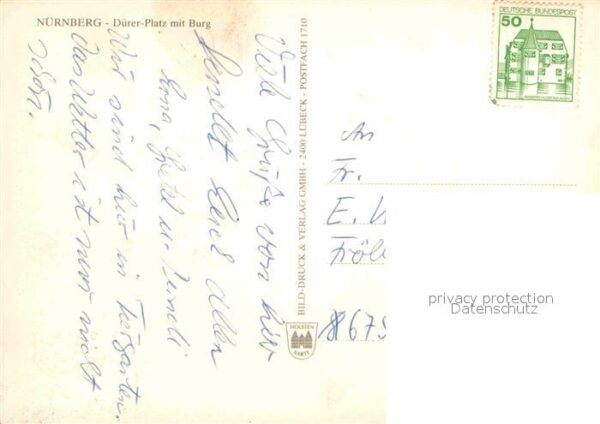 NÜRNBERG - Dürer-Platz mit Burg
Viele Grüße von hier
sendet Euch allen
Erna, Gretl u.
Wir sind hier im Tiergarten.
das Wetter ist nur nicht
schön.
BILD-DRUCK & VERLAG GMBH - 2400 LÜBECK - POSTFACH 1710
HOLSTEN
KARTE
50
DEUTSCHE BUNDESPOST
An
Fr.
E.
Fröl
privacy protection
Datenschutz
867